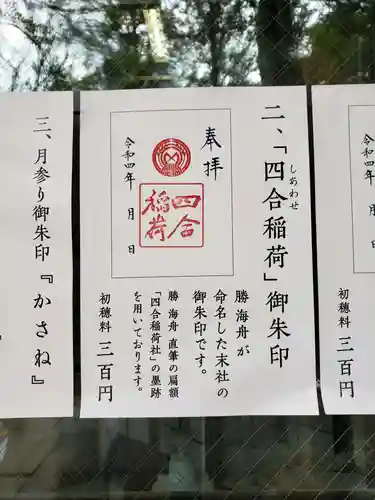 二、「四合稲荷」御朱印
しあわせ
勝 海舟が
命名した末社の
御朱印です。
勝 海舟 直筆の扁額
「四合稲荷社」の墨跡
を用いております。
初穂料 三百円
奉拝
四合
稲荷
令和四年 月 日
三、月参り御朱印『かさね』
初穂料 三百円
令和四年 月 日
初穂料 三百円